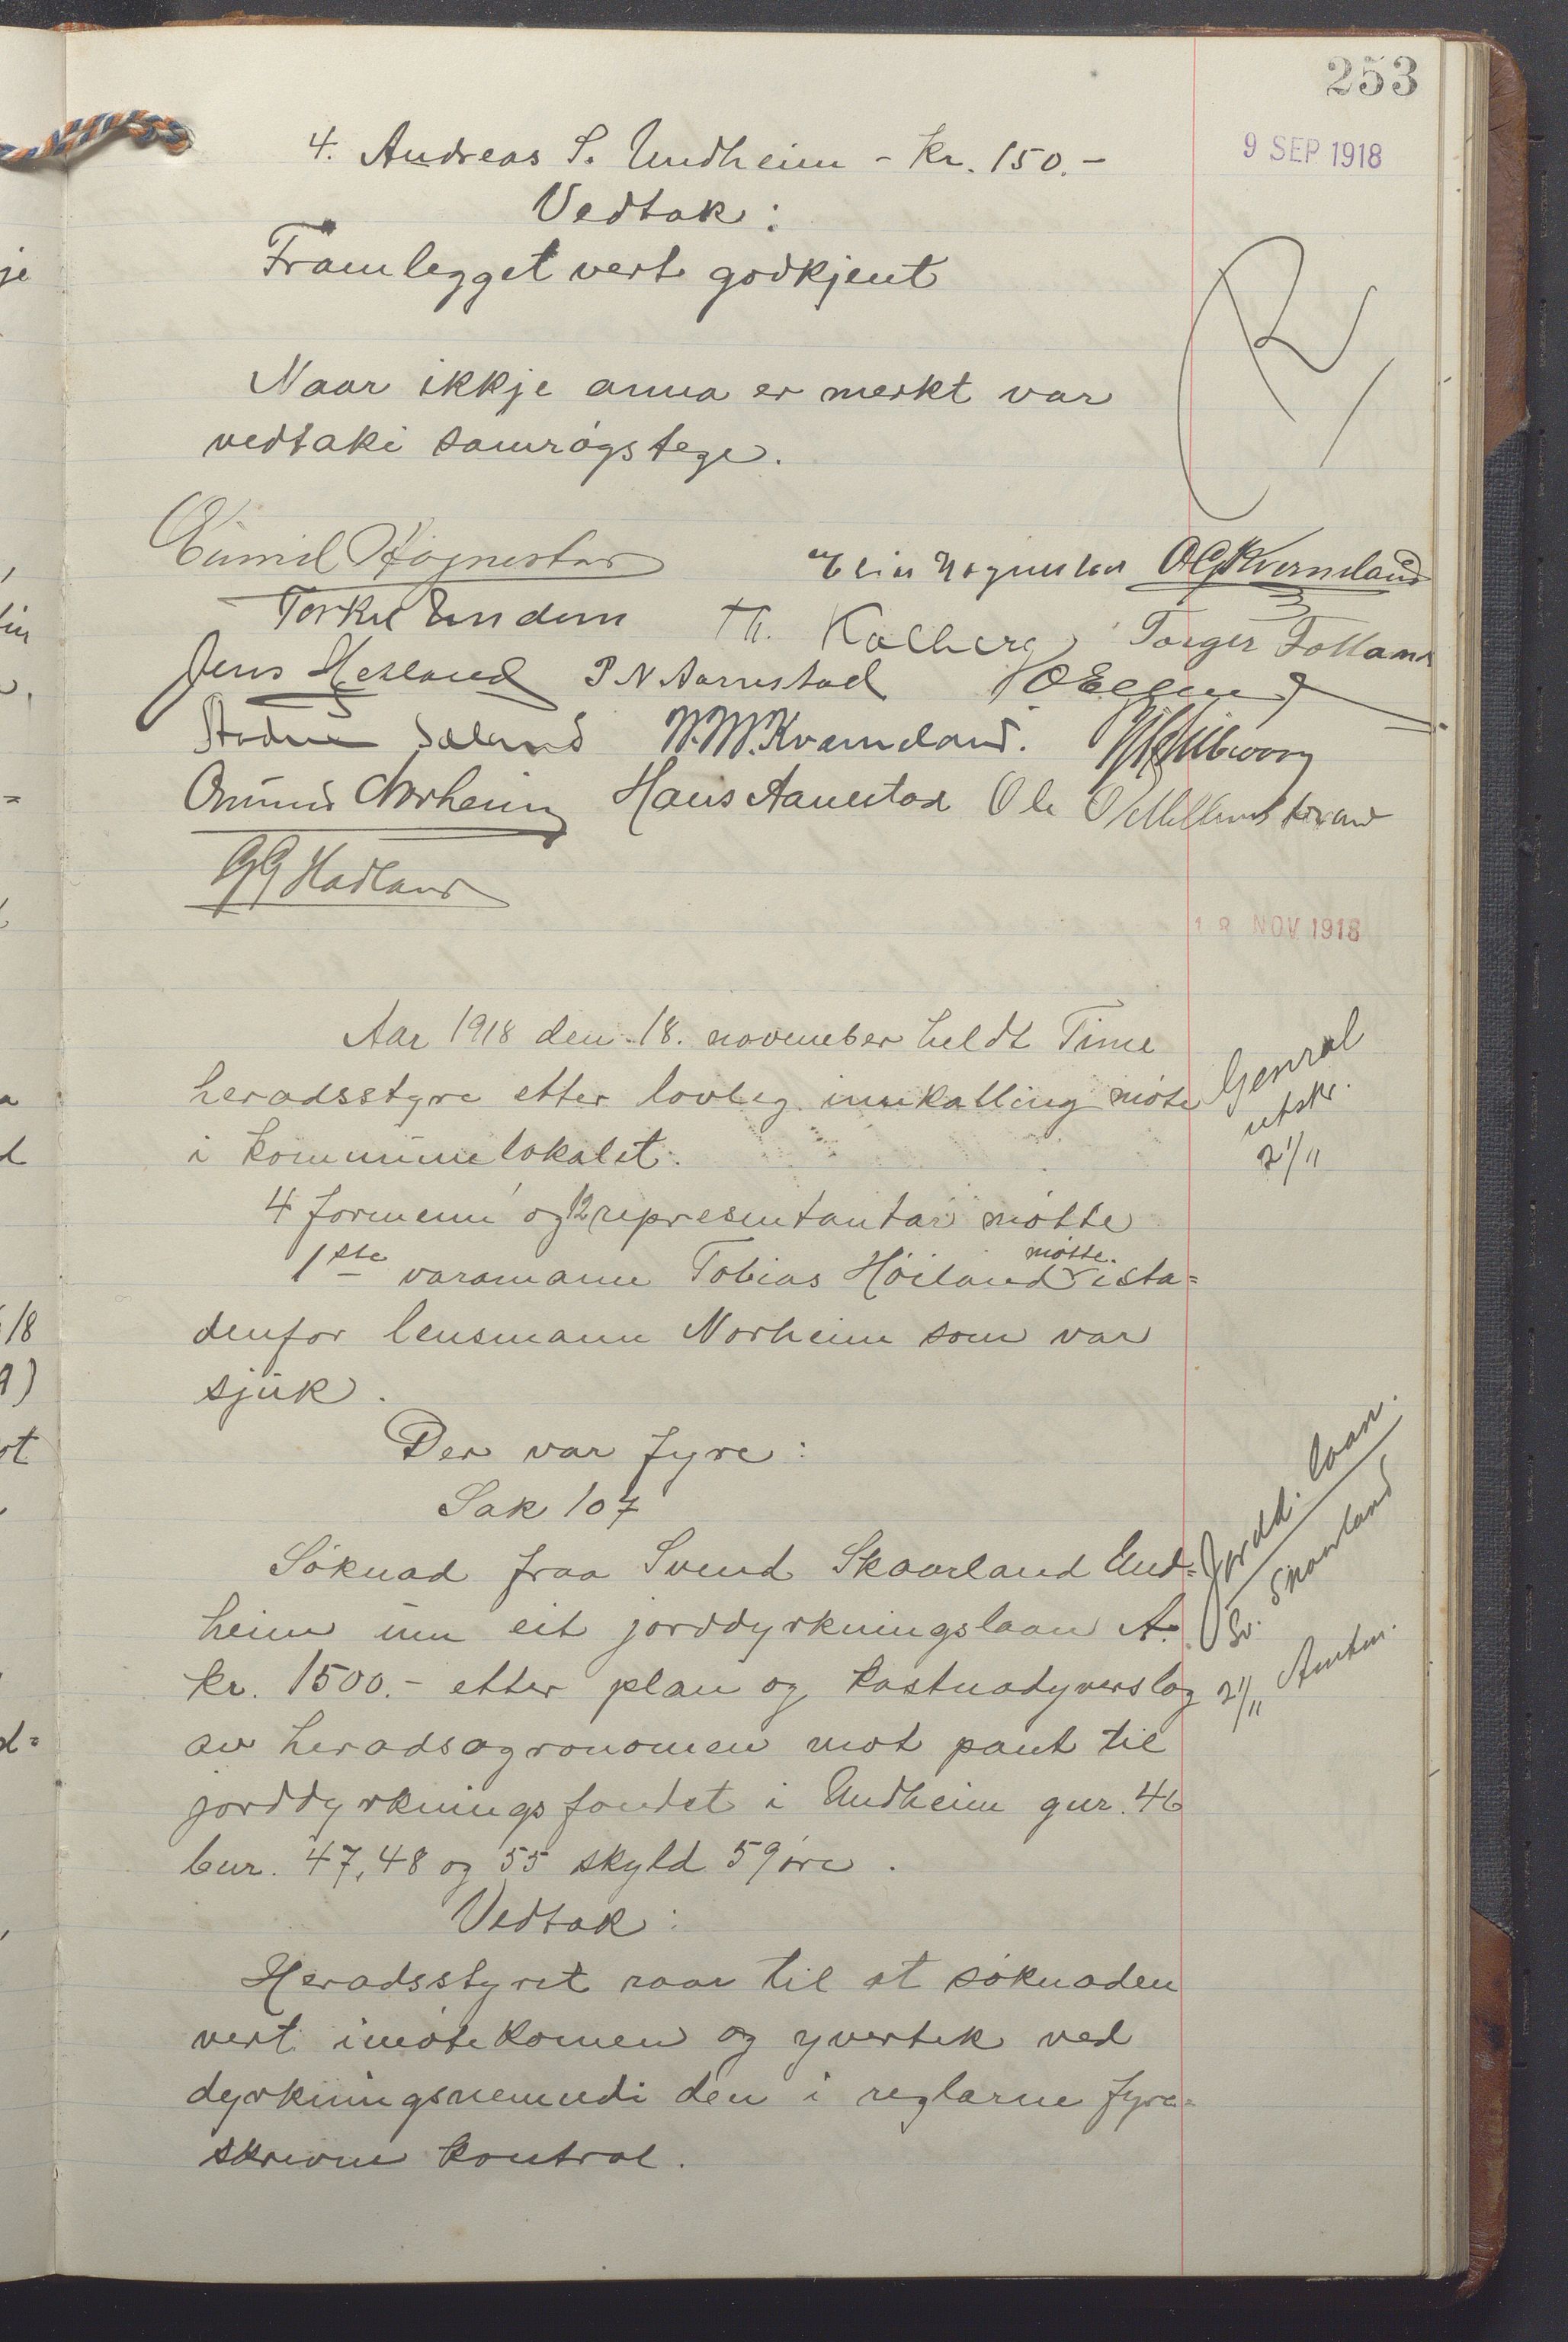 253
9 SEP 1918
4. Andreas S. Undheim - kr. 150.-
Vedtak:
Framlegget vert godkjent
Naar ikkje anna er merkt var
vedtaki samrøgstege.
Torkel
Th. Kalberg Torger
Jens P N Aarrestad
W.W. Kværneland.
Norheim Hans Aanestad Ole O
G G Hadland
18 NOV 1918
Aar 1918 den 18. november heldt Time
heradsstyre etter lovleg innkalling møte
i kommunelokalet.
General
utskr.
21/11
4 formenn og 12 representantar møtte
1ste varamann Tobias Høiland møtte ista=
denfor lensmann Norheim som var
sjuk.
Der var fyre:
Sak 107
Søknad fraa Svend Skaarland Und=
heim um eit jorddyrkningslaan
kr. 1500.- etter plan og kostnadyverslag
av heradsagronomen mot pant til
jorddyrkningsfondet i Undheim gnr. 46
bnr. 47, 48 og 55 skyld 59 øre.
Jordd. laan.
Sv. Skaarland
21/11 Amtm.
Vedtak:
Heradsstyret raar til at søknaden
vert imøtekomen og yvertek ved
dyrkningsnemndi den i reglarne fyre=
skrevne kontrol.